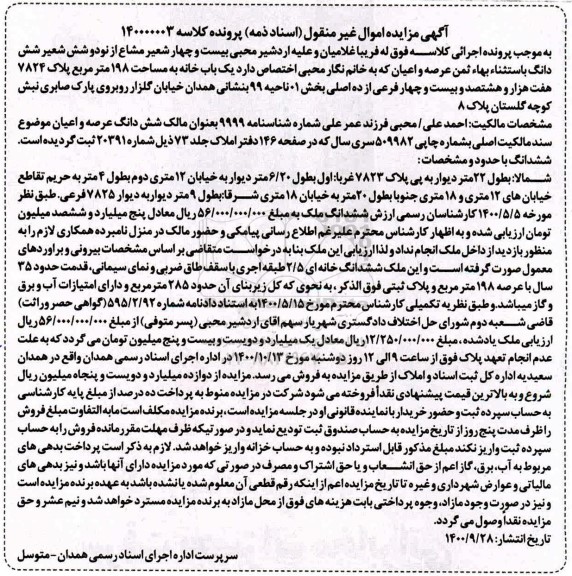 آگهی مزایده اموال غیر منقول (اسناد ذمه) پرونده کلاسه ۱۴۰۰۰۰۰۰۳
به موجب پرونده اجرائی کلاسه فوق له فریبا غلامیان و علیه اردشیر محبی بیست و چهار شعیر مشاع از نود و شش شعیر شش
دانگ باستثناء بهاء ثمن عرصه و اعیان که به خانم نگار محبی اختصاص دارد یک باب خانه به مساحت ۱۹۸ متر مربع پلاک ۷۸۲۴
هفت هزار و هشتصد و بیست و چهار فرعی از ده اصلی بخش ۱۰ ناحیه ۹۹ بنشانی همدان خیابان گلزار روبروی پارک صابری نبش
کوچه گلستان پلاک ۸
مشخصات مالکیت: احمد علی / محبی فرزند عمر علی شماره شناسنامه ۹۹۹۹ بعنوان مالک شش دانگ عرصه و اعیان موضوع
سند مالکیت اصلی بشماره چاپی ۵۰۹۹۸۲ سری سال که در صفحه ۱۴۶ دفتر املاک جلد ۷۳ ذیل شماره ۲۰۳۹۱ ثبت گردیده است.
ششدانگ با حدود و مشخصات:
شمالا: بطول ۲۲متر دیوار به پی پلاک ۷۸۲۳ غربا: اول بطول ۶/۲۰متر دیوار به خیابان ۱۲متری دوم بطول ۴ متر به حریم تقاطع
خیابان های ۱۲متری و ۱۸ متری جنوبا بطول ۲۰متر به خیابان ۱۸ متری شرقا: بطول ۹ متر دیوار به دیوار ۷۸۲۵ فرعی. طبق نظر
مورخه ۱۴۰۰/۵/۵ کارشناسان رسمی ارزش ششدانگ ملک به مبلغ ۵۶/۰۰۰/۰۰۰/۰۰۰ ریال معادل پنج میلیارد و ششصد میلیون
تومان ارزیابی شده و به اظهار کارشناس محترم علیرغم اطلاع رسانی پیامکی و حضور مالک در منزل نامبرده همکاری لازم را به
منظور بازدید از داخل ملک انجام نداد و لذا ارزیابی این ملک بنا به درخواست متقاضی بر اساس مشخصات بیرونی و برآوردهای
معمول صورت گرفته است و این ملک ششدانگ خانه ای ۲/۵ طبقه آجری با سقف طاق ضربی و نمای سیمانی، قدمت حدود ۳۵
سال با عرصه ۱۹۸ متر مربع و پلاک ثبتی فوق الذکر، به نحوی که کل زیربنای آن حدود ۲۸۵ متر مربع و دارای امتیازات آب و برق
و گاز میباشد. و طبق نظریه تکمیلی کارشناس محترم مورخ ۱۴۰۰/۵/۱۵ به استناد دادنامه شماره ۵۹۵/۲/۹۲ (گواهی حصر وراثت)
قاضی شعبه دوم شورای حل اختلاف دادگستری شهریار سهم اقای اردشیر محبی (پسر متوفی) از مبلغ ۵۶/۰۰۰/۰۰۰/۰۰۰ ریال
ارزیابی ملک یاد شده، مبلغ ۱۲/۲۵۰/۰۰۰/۰۰۰ ریال معادل یک میلیارد و دویست و بیست و پنج میلیون تومان می گردد که به علت
عدم انجام تعهد پلاک فوق از ساعت ۹ الی ۱۲ روز دوشنبه مورخ ۱۴۰۰/۱۰/۱۳ در اداره اجرای اسناد رسمی همدان واقع در همدان
سعیدیه اداره کل ثبت اسناد و املاک از طریق مزایده به فروش می رسد. مزایده از دوازده میلیارد و دویست و پنجاه میلیون ریال
شروع و به بالاترین قیمت پیشنهادی نقداً فروخته می شود شرکت در مزایده منوط به پرداخت ده درصد از مبلغ پایه کارشناسی
به حساب سپرده ثبت و حضور خریدار یا نماینده قانونی او در جلسه مزایده است، برنده مزایده مکلف است مابه التفاوت مبلغ فروش
را ظرف مدت پنج روز از تاریخ مزایده به حساب صندوق ثبت تودیع نماید و در صورتیکه ظرف مهلت مقرر مانده فروش را به حساب
سپرده ثبت واریز نکند مبلغ مذکور قابل استرداد نبوده و به حساب خزانه واریز خواهد شد. لازم به ذکر است پرداخت بدهی های
مربوط به آب، برق، گاز اعم از حق انشعاب و یا حق اشتراک و مصرف در صورتی که مورد مزایده دارای آنها باشد و نیز بدهی های
مالیاتی و عوارض شهرداری و غیره تا تاریخ مزایده اعم از اینکه رقم قطعی آن معلوم شده یا نشده باشد به عهده برنده مزایده است
و نیز در صورت وجود مازاد، وجوه پرداختی بابت هزینه های فوق از محل مازاد به برنده مزایده مسترد خواهد شد و نیم عشر و حق
مزایده نقداً وصول می گردد.
تاریخ انتشار: ۱۴۰۰/۹/۲۸
سرپرست اداره اجرای اسناد رسمی همدان - متوسل